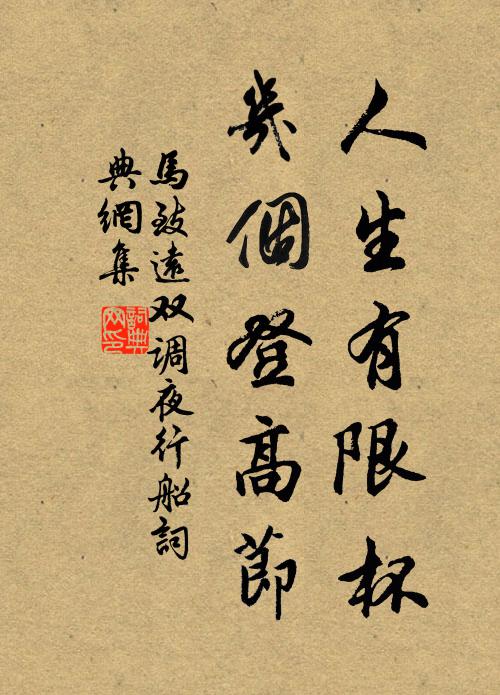 人生有限杯
幾個登高節
馬致遠双调夜行船詞
典網集
詞典网印